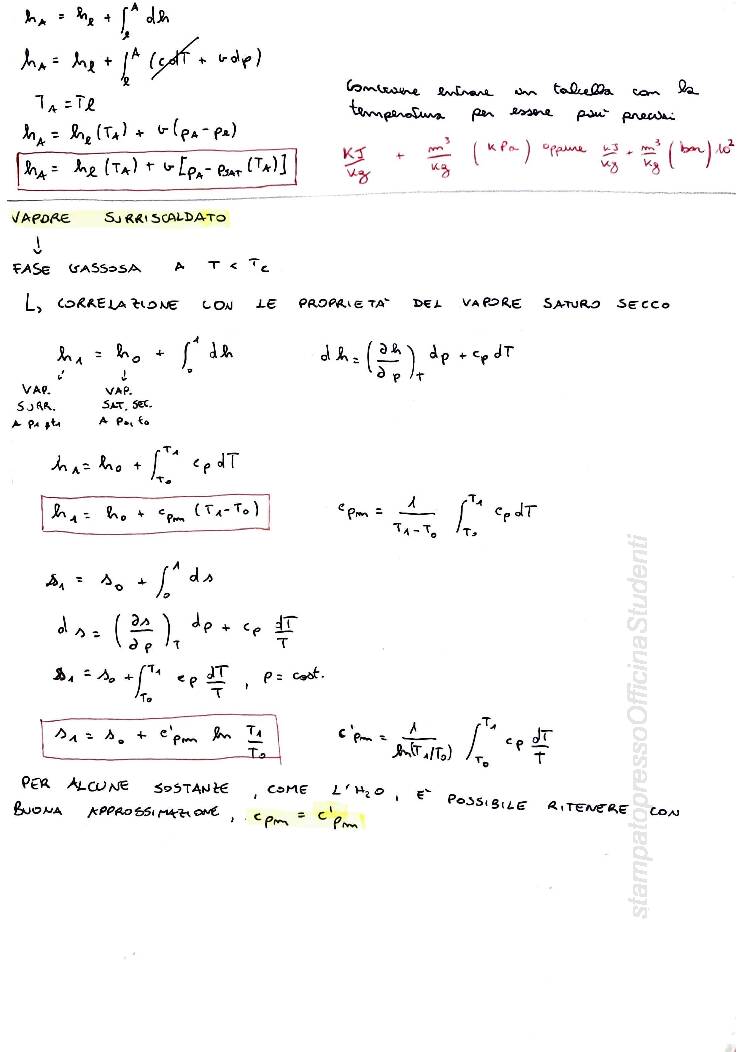 h_A = h_l + ∫_l^A dh
h_A = h_l + ∫_l^A (cdT + vdp)
T_A = T_l
h_A = h_l (T_A) + v (p_A - p_l)
h_A = h_l (T_A) + v [p_A - p_SAT (T_A)]
Conviene entrare in tabella con la
temperatura per essere più precisi
KJ/Kg + m³/Kg (KPa) oppure KJ/Kg + m³/Kg (bar) 10²
VAPORE SURRISCALDATO
↓
FASE GASSOSA A T < T_c
↳ CORRELAZIONE CON LE PROPRIETA' DEL VAPORE SATURO SECCO
h_1 = h_0 + ∫_0^1 dh
dh = (∂h/∂p)_T dp + c_p dT
↓ ↓
VAP. VAP.
SURR. SAT. SEC.
A p1, t1 A p0, t0
h_1 = h_0 + ∫_T0^T1 c_p dT
h_1 = h_0 + c_pm (T_1 - T_0)
c_pm = 1/(T_1 - T_0) ∫_T0^T1 c_p dT
s_1 = s_0 + ∫_0^1 ds
ds = (∂s/∂p)_T dp + c_p dT/T
s_1 = s_0 + ∫_T0^T1 c_p dT/T , P = cost.
s_1 = s_0 + c'_pm ln T_1/T_0
c'_pm = 1/ln(T_1/T_0) ∫_T0^T1 c_p dT/T
PER ALCUNE SOSTANZE, COME L'H₂O, E' POSSIBILE RITENERE CON
BUONA APPROSSIMAZIONE, c_pm = c'_pm
stampatopressoOfficinaStudenti